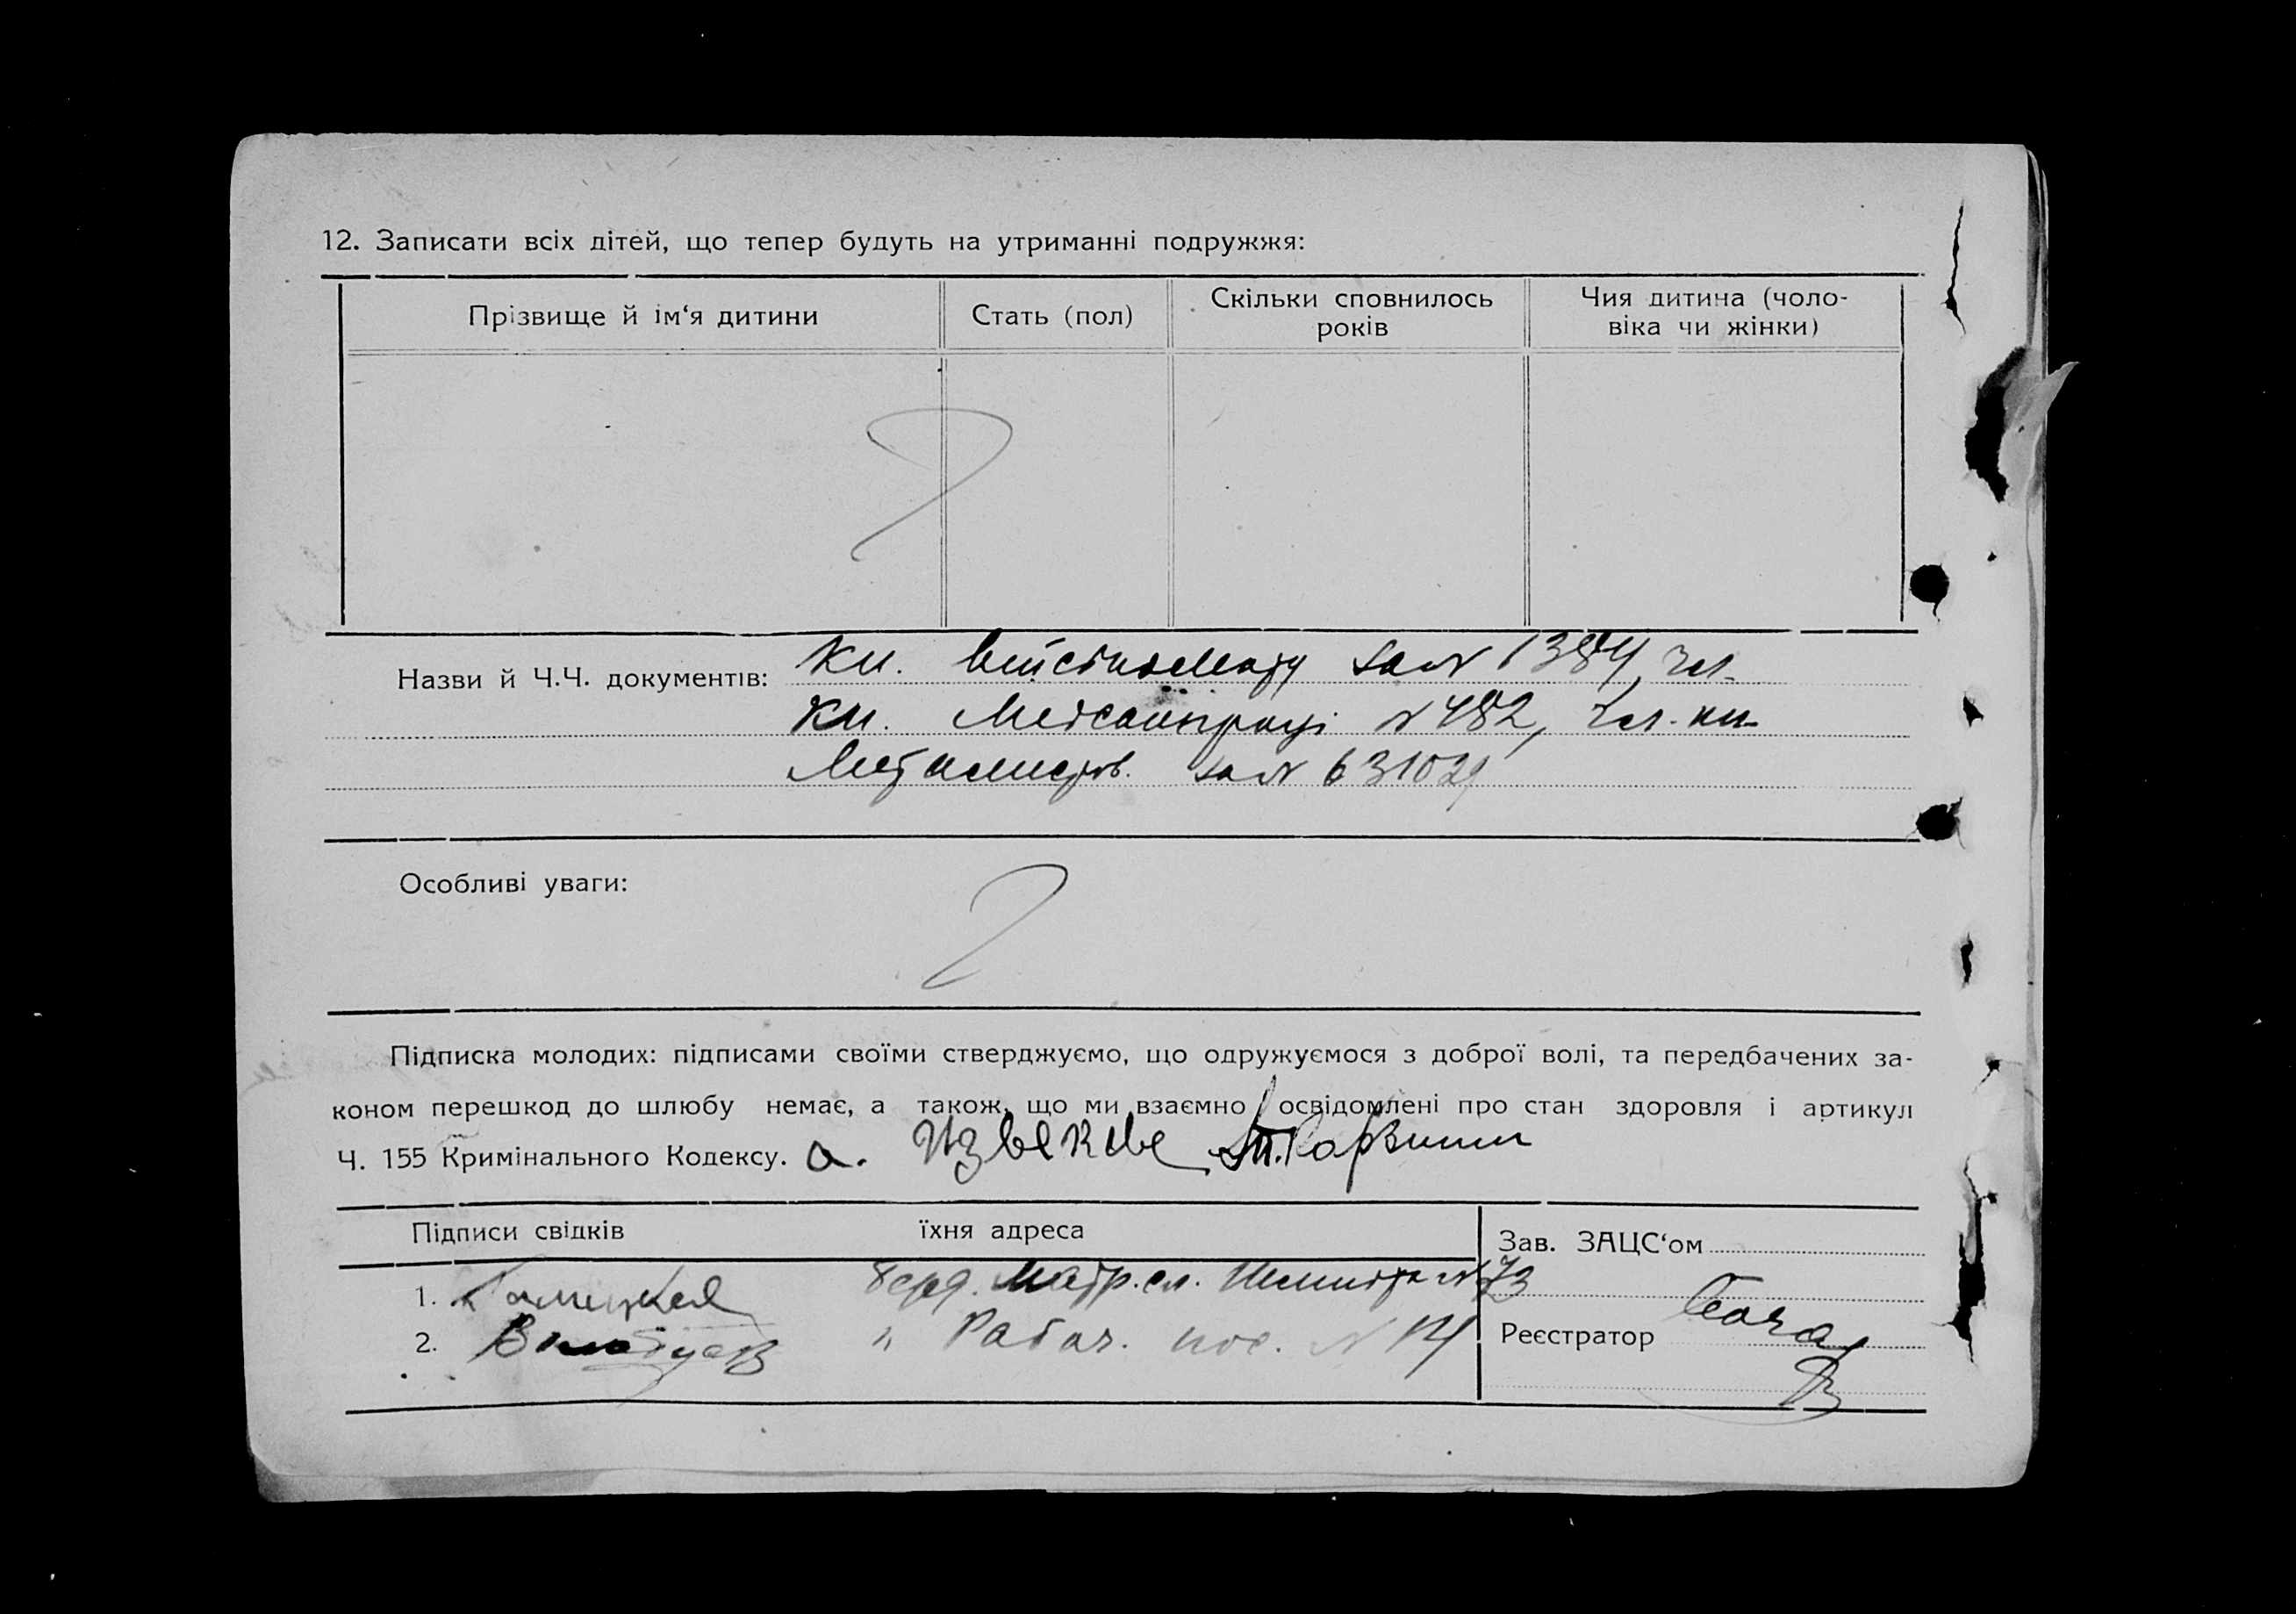 12. Записати всіх дітей, що тепер будуть на утриманні подружжя:
Прізвище й ім‘я дитини
Стать (пол)
Скільки сповнилось
років
Чия дитина (чоло-
віка чи жінки)
Назви й Ч.Ч. документів:
Кн. за № 1384, чл.
кн. № 482, чл. кн.
за № 631029
Особливі уваги:
Підписка молодих: підписами своїми стверджуємо, що одружуємося з доброї волі, та передбачених за-
коном перешкод до шлюбу немає, а також, що ми взаємно освідомлені про стан здоровля і артикул
Ч. 155 Кримінального Кодексу. а.
Підписи свідків їхня адреса
Зав. ЗАЦС‘ом
1. Берд. № 73
2. " Рабоч. пос. № 14
Реєстратор